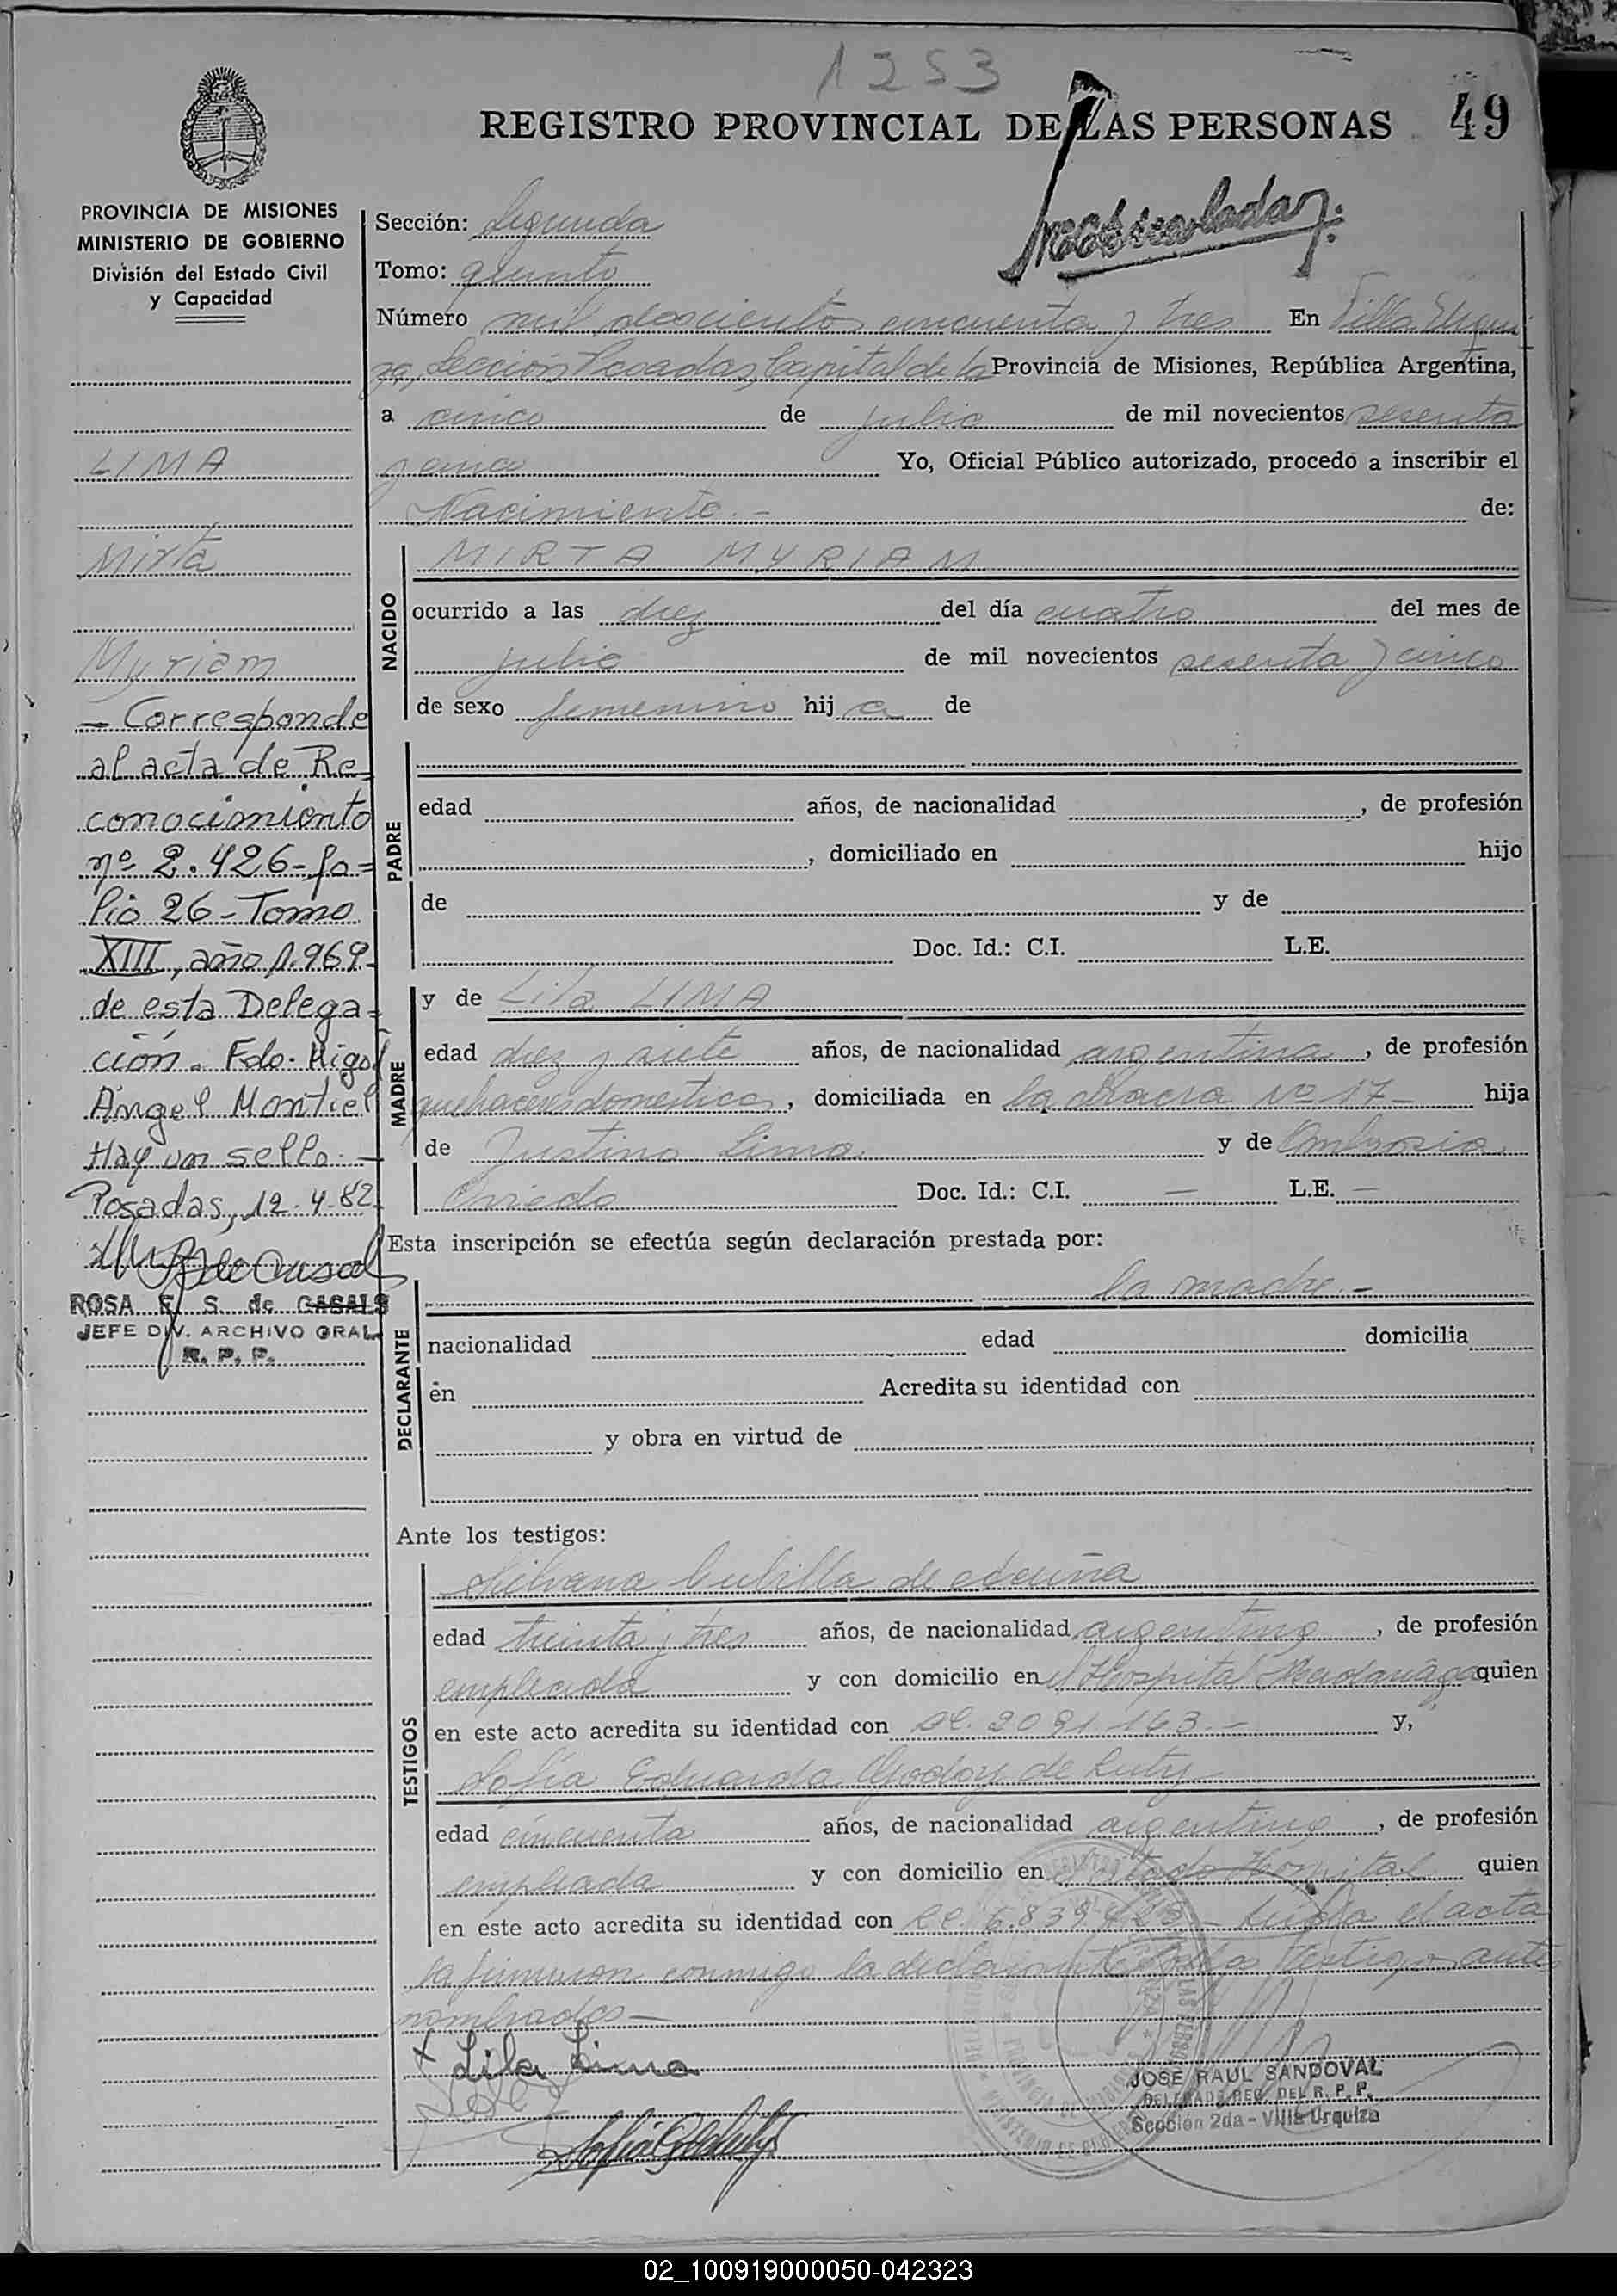 1253
REGISTRO PROVINCIAL DE LAS PERSONAS 49
PROVINCIA DE MISIONES
MINISTERIO DE GOBIERNO
División del Estado Civil
y Capacidad
LIMA
Mirta
Myriam
- Corresponde
al acta de Re=
conocimiento
nº 2.426- fo=
lio 26 - Tomo
XIII, año 1.969-
de esta Delega=
ción. Fdo. Migel
Ángel Montiel
Hay un sello. -
Posadas, 12.4.82
ROSA E. S. de CASALS
JEFE DIV. ARCHIVO GRAL
R. P. P.
Sección: Segunda
Tomo: quinto
Número mil doscientos cincuenta y tres En Villa Urqui
za, Sección Posadas, Capital de la Provincia de Misiones, República Argentina,
a cinco de julio de mil novecientos sesenta
y cinco Yo, Oficial Público autorizado, procedo a inscribir el
Nacimiento.- de:
NACIDO
MIRTA MYRIAM
ocurrido a las diez del día cuatro del mes de
julio de mil novecientos sesenta y cinco
de sexo femenino hija de
PADRE
edad años, de nacionalidad , de profesión
, domiciliado en hijo
de y de
Doc. Id.: C.I. L.E.
MADRE
y de Lila LIMA
edad diez y siete años, de nacionalidad argentina, de profesión
quehaceres domesticos, domiciliada en la chacra Nº 17- hija
de Justino Lima y de Ambrosia
Oviedo Doc. Id.: C.I. — L.E. —
Esta inscripción se efectúa según declaración prestada por:
DECLARANTE
la madre.-
nacionalidad edad domicilia
en Acredita su identidad con
y obra en virtud de
Ante los testigos:
TESTIGOS
Silvana Cubilla de Acuña
edad treinta y tres años, de nacionalidad argentina, de profesión
empleada y con domicilio en el Hospital Madariaga quien
en este acto acredita su identidad con 2091.163.- y,
Sofía Eduarda Godoy de Luty
edad cincuenta años, de nacionalidad argentina, de profesión
empleada y con domicilio en Hospital quien
en este acto acredita su identidad con Leída el acta
la firmaron conmigo la declarante testigos ante
nombrados-
x Lila Lima
JOSE RAUL SANDOVAL
DELEGADO REG. DEL R. P. P.
Sección 2da - Villa Urquiza
02_100919000050-042323